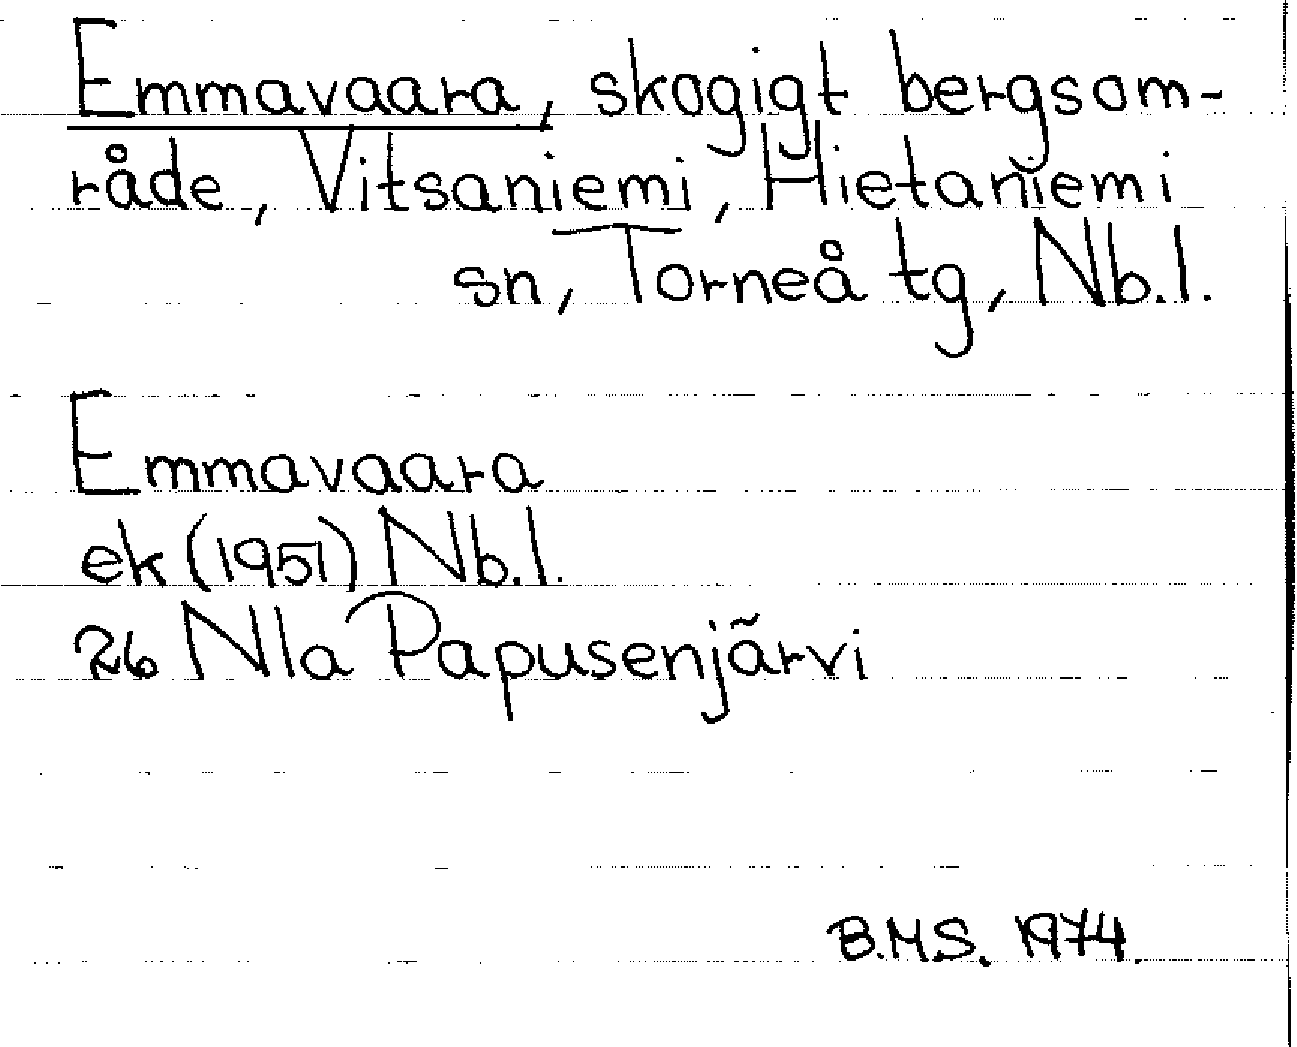 Emmavaara, skogigt bergsom-
råde, Vitsaniemi, Hietaniemi
sn, Torneå tg, Nb.l.
Emmavaara
ek (1951) Nb.l.
26 Nla Papusenjärvi
B.M.S. 1974.